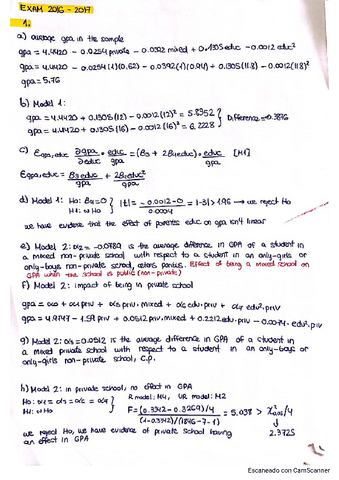 EXAM 2016 - 2017
1.
a) average gpa in the sample
gpa = 4.4420 - 0.0254 private - 0.0392 mixed + 0.1305 educ - 0.0012 educ²
gpa = 4.4420 - 0.0254(1)(0.62) - 0.0392(1)(0.94) + 0.1305(11.8) - 0.0012(118)²
gpa = 5,76
b) Model 1:
gpa = 4.4420 + 0.1305(12) - 0.0012(12)² = 5.8352
gpa = 4.4420 + 0.1305(16) - 0.0012(16)² = 6.2228
Difference = 0.3876
c) Egpa,educ = ∂gpa/∂educ · educ/gpa = (β3 + 2β4educ) · educ/gpa [M1]
Egpa,educ = β3educ/gpa + 2β4educ²/gpa
d) Model 1: Ho: β4=0 |t| = |-0.0012-0 / 0.0004| = |-3| > 1.96 → we reject Ho
H1: ≠ Ho
we have evidence that the effect of parents educ on gpa isn't linear
e) Model 2: α2 = -0.0789 is the average difference in GPA of a student in
a mixed non-private school with respect to a student in an only-girls or
only-boys non-private school, ceteris paribus. Effect of being a mixed school on
GPA when the school is public (non-private)
f) Model 2: impact of being in private school
gpa = α0 + α1 priv + α5 priv. mixed + α6 edu.priv + α7 edu².priv
gpa = 4.9747 - 1.59 priv + 0.0512 priv. mixed + 0.2212 edu. priv - 0.0074 edu². priv
g) Model 2: α5 = 0.0512 is the average difference in GPA of a student in
a mixed private school with respect to a student in an only-boys or
only-girls non-private school, C.P.
h) Model 2: in private school, no effect in GPA
Ho: α1 = α5 = α6 = α7 R model: M4, UR model: M2
H1: ≠ Ho F = (0.3342 - 0.3269)/4 / (1-0.3342)/(1846-7-1) = 5.038 > χ²0.05/4
↓
2.3725
we reject Ho, we have evidence of private school having
an effect in GPA
Escaneado con CamScanner